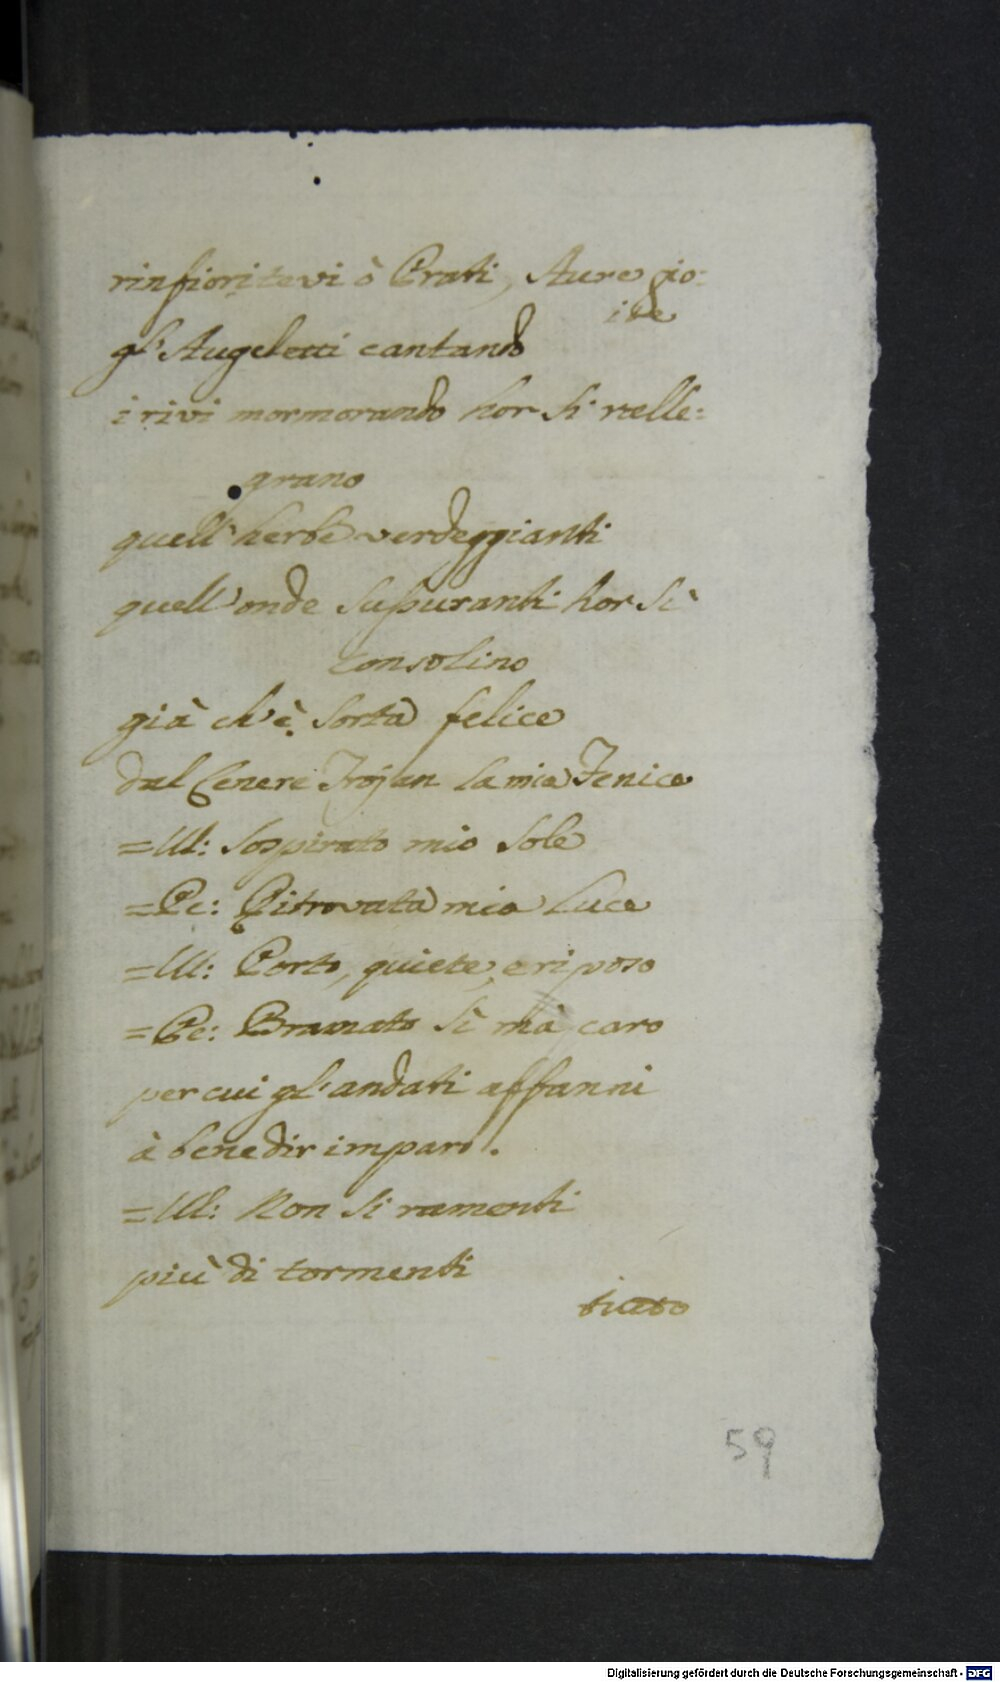 rinfioritevi ò Prati, Aure gio=
ite
gl' Augeletti cantando
i rivi mormorando hor si ralle=
grano
quell' herbe verdeggianti
quell' onde supuranti hor sì
consolino
già ch' è sorta felice
dal Cenere Trojan la mia Fenice
=Ul: Sospirato mio Sole
=Pe: Ritrovata mia Luce
=Ul: Porto, quiete, e riposo
=Pe: Bramato sì mà caro
per cui gl' andati affanni
à benedir imparo.
=Ul: Non si ramenti
più di tormenti
59
Digitalisierung gefördert durch die Deutsche Forschungsgemeinschaft - DFG